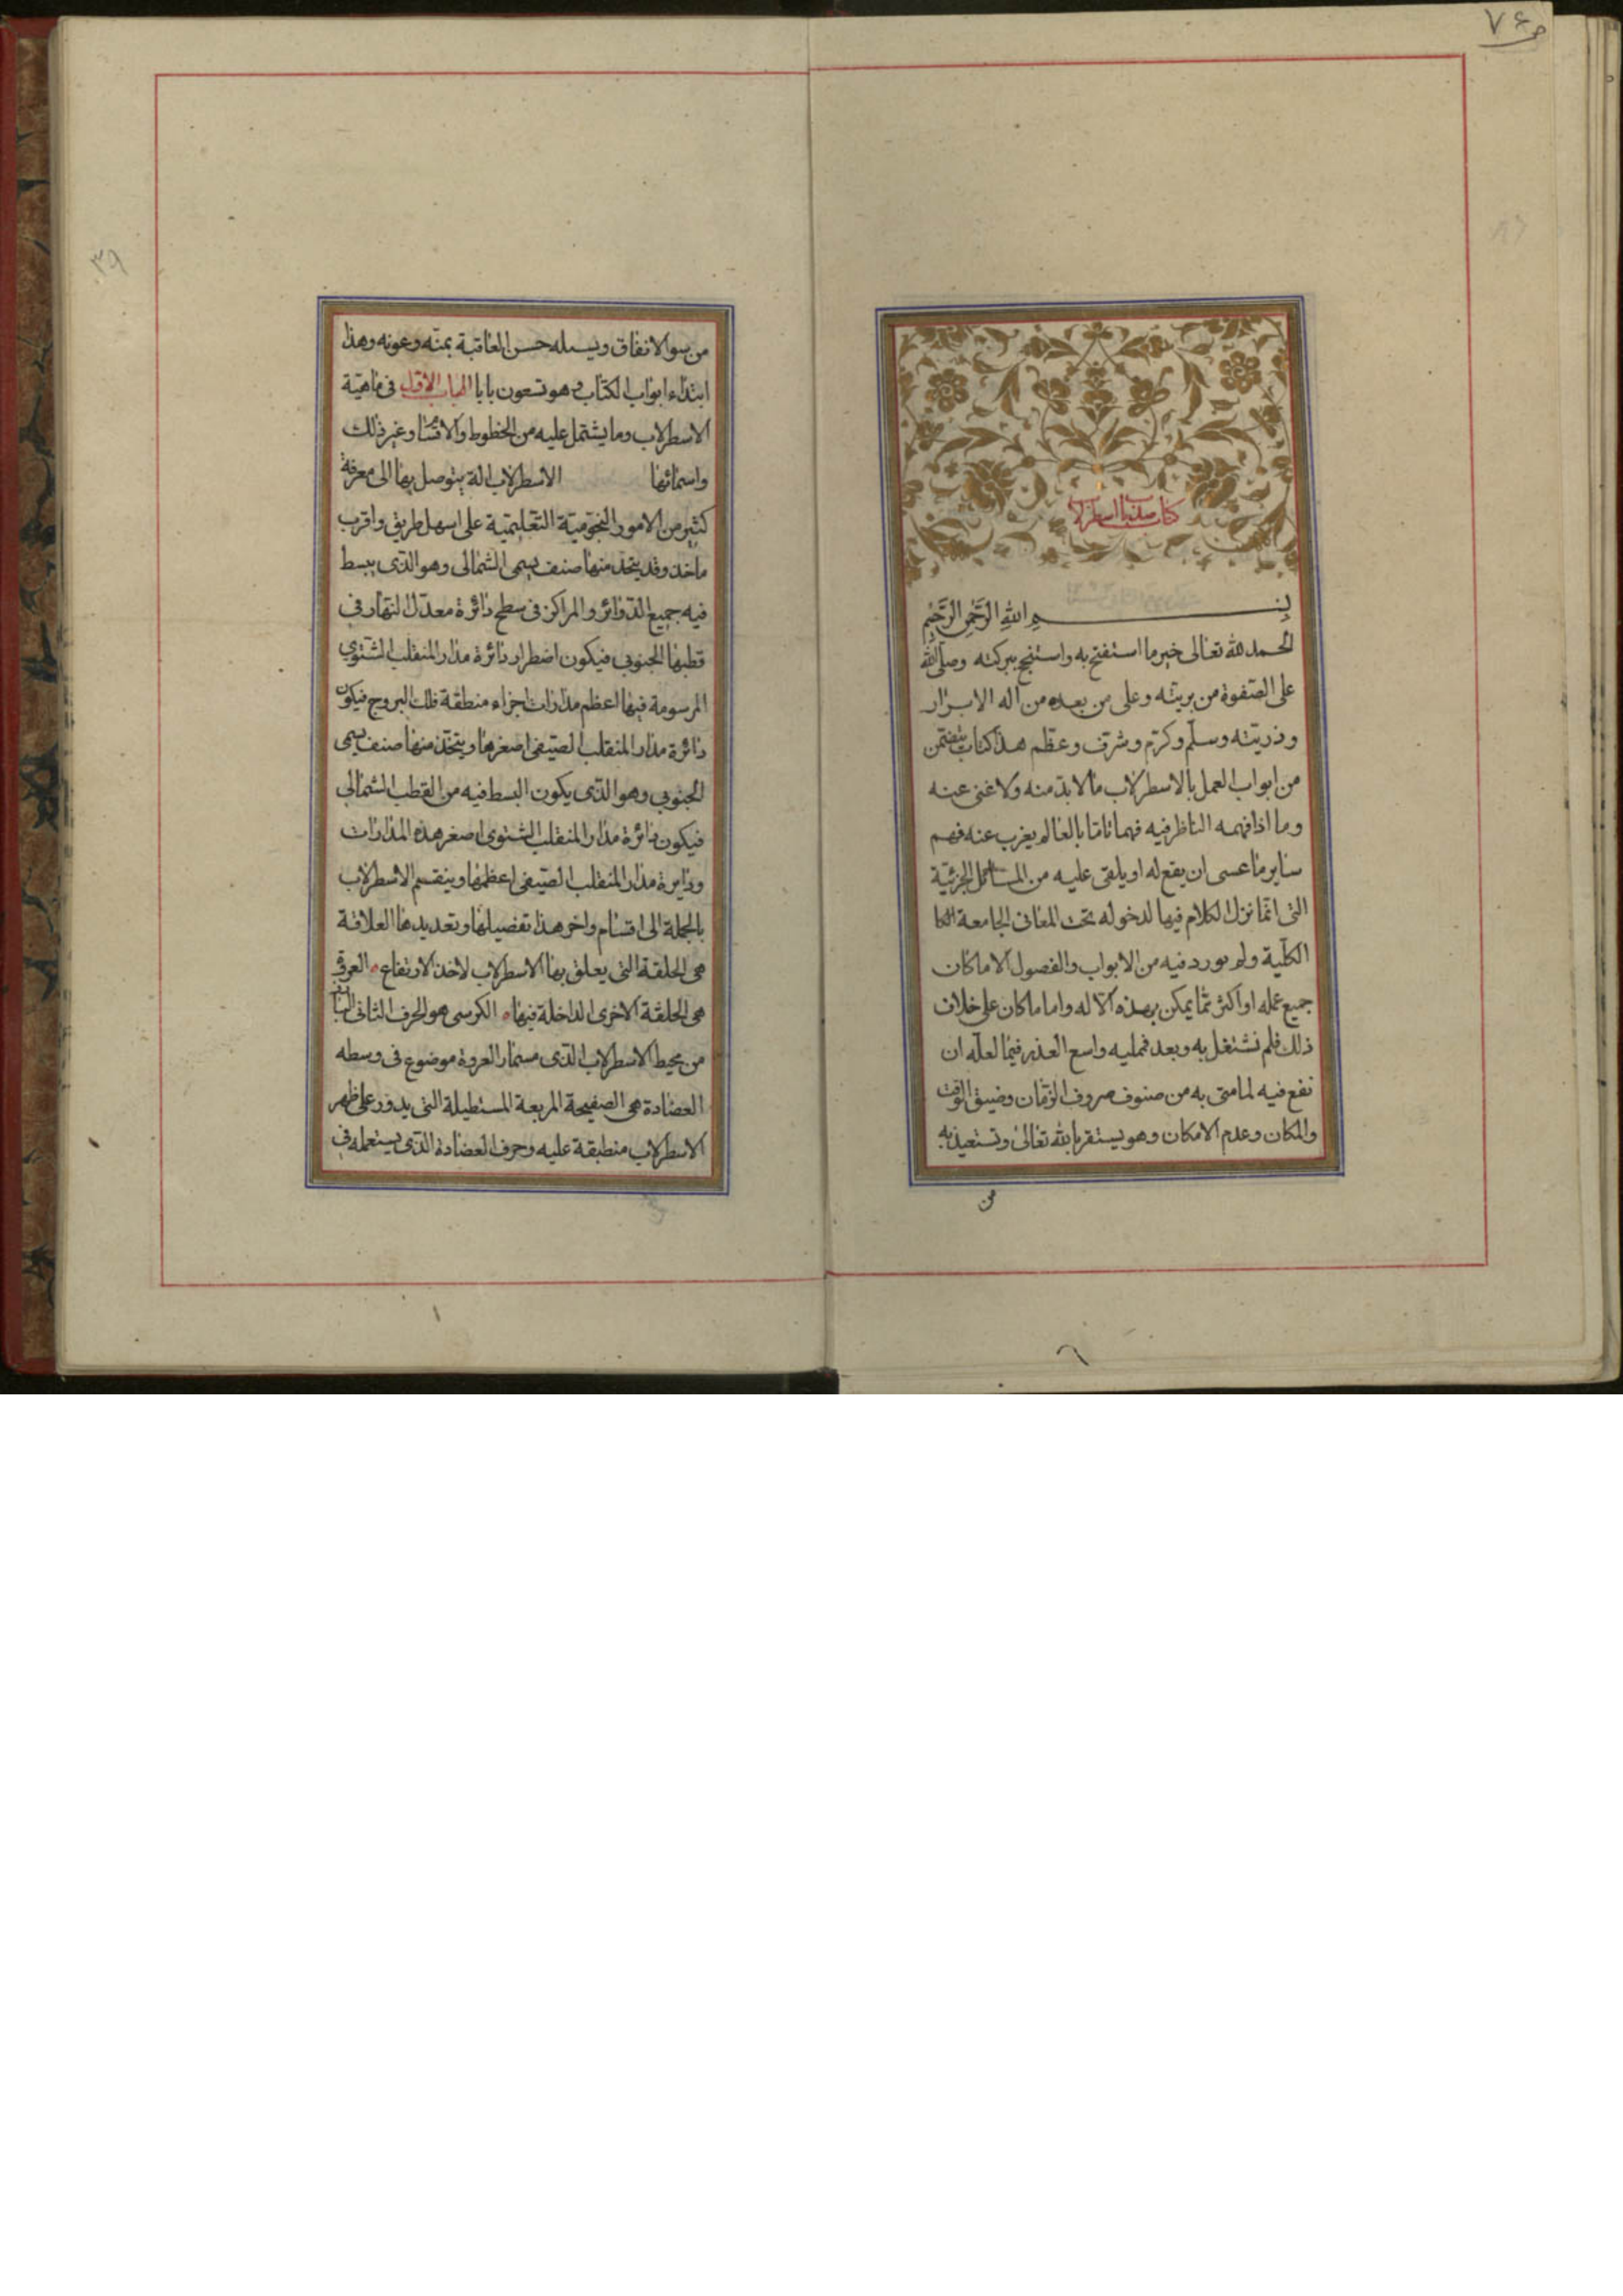 ص ٧٤
كتاب صدباب اسطرلاب
بسم الله الرحمن الرحيم
الحمد لله تعالى خير ما استفتح به واستنجح ببركته وصلى الله
على الصفوة من بريته وعلى من بعده من اله الابرار
وذريته وسلم وكرم وشرف وعظم هذا كتاب يتضمن
من ابواب العمل بالاسطرلاب ما لا بد منه ولا غنى عنه
وما اذا فهمه الناظر فيه فهما تاما بالغا لم يغرب عنه فهم
ساير ما عسى ان يقع له او يلقى عليه من المسائل الجزئية
التى انما نزل الكلام فيها لدخوله تحت المعانى الجامعة الكا
الكلية ولم يورد فيه من الابواب والفصول الا ما كان
جميع عمله او اكثر مما يمكن بهذه الاله واما ما كان على خلاف
ذلك فلم نشتغل به وبعد فمليه واسع العذر فيما لعله ان
نفع فيه لما منى به من صنوف صروف الزمان وضيق الوقت
والمكان وعدم الامكان وهو يستقر بالله تعالى وتستعيذ به
من
٣٩
من سو الاتفاق ويسله حسن العاقبة بمنه وعونه وهذا
ابتداء ابواب الكتاب وهو تسعون بابا الباب الاول فى ماهية
الاسطرلاب وما يشتمل عليه من الخطوط والاقسام وغير ذلك
واسمائها الاسطرلاب الة يتوصل بها الى معرفة
كثير من الامور النجومية التعليمية على اسهل طريق واقرب
ماخذ وقد يتخذ منها صنف يسمى الشمالى وهو الذى يبسط
فيه جميع الدوائر والمراكز فى سطح دائرة معدل النهار فى
قطبها الجنوبى فيكون اضطرار دائرة مدار المنقلب الشتوى
المرسومة فيها اعظم مدارات اجزاء منطقة فلك البروج فيكون
دائرة مدار المنقلب الصيفى اصغرها ويتخذ منها صنف يسمى
الجنوبى وهو الذى يكون البسط فيه من القطب الشمالى
فيكون دائرة مدار المنقلب الشتوى اصغر هذه المدارات
ودايرة مدار المنقلب الصيفى اعظمها وينقسم الاسطرلاب
بالجملة الى اقسام واخر هذا تفصيلها وتعديدها العلاقة
هى الحلقة التى يعلق بها الاسطرلاب لاخذ الارتفاع العروة
هى الحلقة الاخرى الداخلة فيها الكرسى هو الحرف الثانى
من محيط الاسطرلاب الذى مسمار العروة موضوع فى وسطه
العضادة هى الصفيحة المربعة المستطيلة التى يدور على ظهر
الاسطرلاب منطبقة عليه وحرف العضادة الذى يستعمله فى